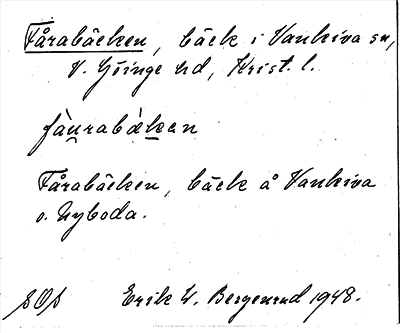 Fårabäcken, bäck i Vankiva sn,
V. Göinge hd, Krist. l.
fàurabǽkan
Fårabäcken, bäck å Vankiva
o. Nyboda.
Erik W. Bergenrud 1948.